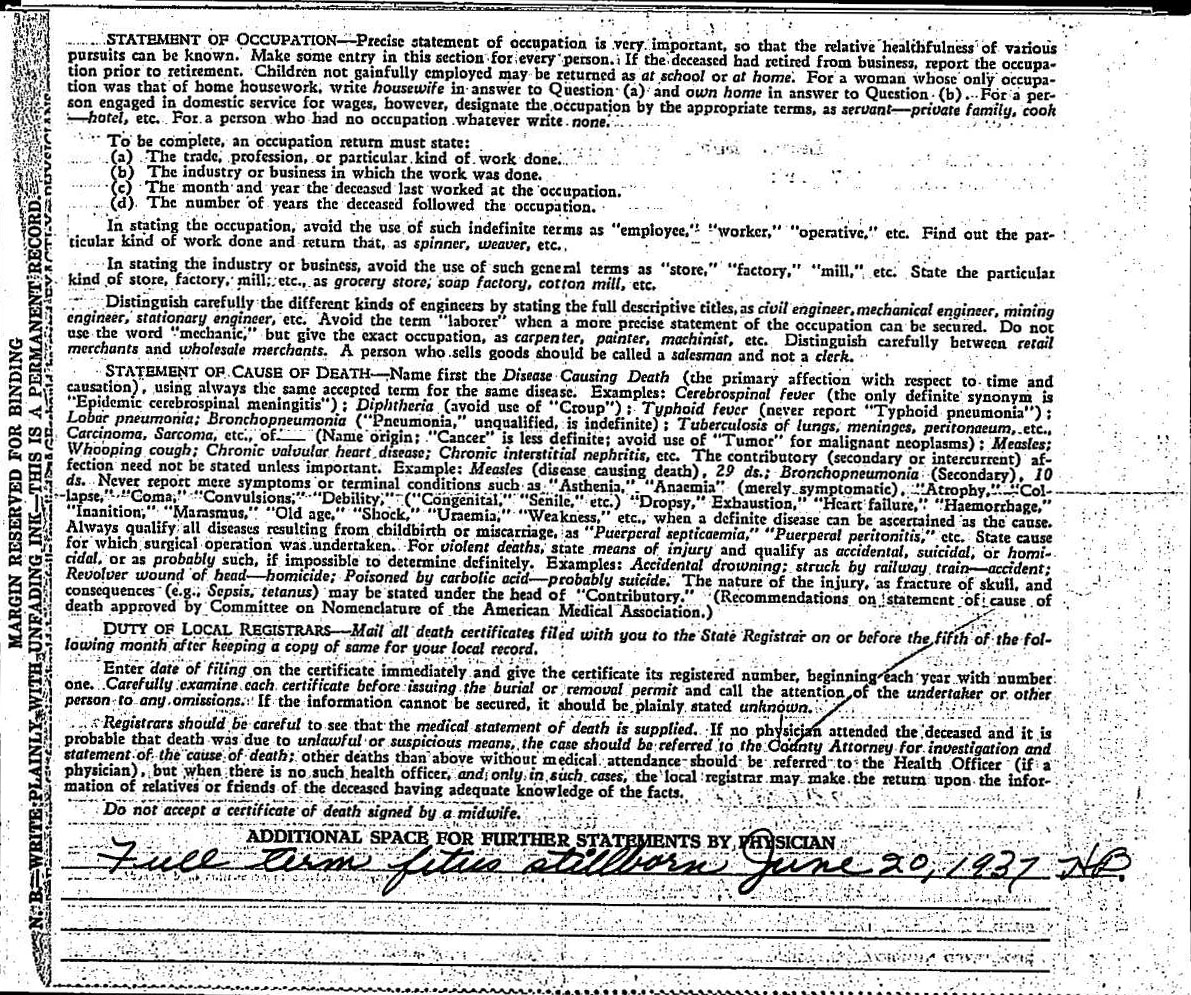 STATEMENT OF OCCUPATION—Precise statement of occupation is very important, so that the relative healthfulness of various
pursuits can be known. Make some entry in this section for every person. If the deceased had retired from business, report the occupa-
tion prior to retirement. Children not gainfully employed may be returned as at school or at home. For a woman whose only occupa-
tion was that of home housework, write housewife in answer to Question (a) and own home in answer to Question (b). For a per-
son engaged in domestic service for wages, however, designate the occupation by the appropriate terms, as servant—private family, cook
—hotel, etc. For a person who had no occupation whatever write none.
To be complete, an occupation return must state:
(a) The trade, profession, or particular kind of work done.
(b) The industry or business in which the work was done.
(c) The month and year the deceased last worked at the occupation.
(d) The number of years the deceased followed the occupation.
In stating the occupation, avoid the use of such indefinite terms as "employee," "worker," "operative," etc. Find out the par-
ticular kind of work done and return that, as spinner, weaver, etc.
In stating the industry or business, avoid the use of such general terms as "store," "factory," "mill," etc. State the particular
kind of store, factory, mill, etc., as grocery store, soap factory, cotton mill, etc.
Distinguish carefully the different kinds of engineers by stating the full descriptive titles, as civil engineer, mechanical engineer, mining
engineer, stationary engineer, etc. Avoid the term "laborer" when a more precise statement of the occupation can be secured. Do not
use the word "mechanic," but give the exact occupation, as carpenter, painter, machinist, etc. Distinguish carefully between retail
merchants and wholesale merchants. A person who sells goods should be called a salesman and not a clerk.
STATEMENT OF CAUSE OF DEATH—Name first the Disease Causing Death (the primary affection with respect to time and
causation), using always the same accepted term for the same disease. Examples: Cerebrospinal fever (the only definite synonym is
"Epidemic cerebrospinal meningitis"); Diphtheria (avoid use of "Croup"); Typhoid fever (never report "Typhoid pneumonia");
Lobar pneumonia; Bronchopneumonia ("Pneumonia," unqualified, is indefinite); Tuberculosis of lungs, meninges, peritonaeum, etc.,
Carcinoma, Sarcoma, etc., of___ (Name origin; "Cancer" is less definite; avoid use of "Tumor" for malignant neoplasms); Measles;
Whooping cough; Chronic valvular heart disease; Chronic interstitial nephritis, etc. The contributory (secondary or intercurrent) af-
fection need not be stated unless important. Example: Measles (disease causing death), 29 ds.; Bronchopneumonia (Secondary), 10
ds. Never report mere symptoms or terminal conditions such as "Asthenia," "Anaemia" (merely symptomatic), "Atrophy," "Col-
lapse," "Coma," "Convulsions," "Debility," ("Congenital," "Senile," etc.) "Dropsy," Exhaustion," "Heart failure," "Haemorrhage,"
"Inanition," "Marasmus," "Old age," "Shock," "Uraemia," "Weakness," etc., when a definite disease can be ascertained as the cause.
Always qualify all diseases resulting from childbirth or miscarriage, as "Puerperal septicaemia," "Puerperal peritonitis," etc. State cause
for which surgical operation was undertaken. For violent deaths, state means of injury and qualify as accidental, suicidal, or homi-
cidal, or as probably such, if impossible to determine definitely. Examples: Accidental drowning; struck by railway train—accident;
Revolver wound of head—homicide; Poisoned by carbolic acid—probably suicide. The nature of the injury, as fracture of skull, and
consequences (e.g., Sepsis, tetanus) may be stated under the head of "Contributory." (Recommendations on statement of cause of
death approved by Committee on Nomenclature of the American Medical Association.)
DUTY OF LOCAL REGISTRARS—Mail all death certificates filed with you to the State Registrar on or before the fifth of the fol-
lowing month after keeping a copy of same for your local record.
Enter date of filing on the certificate immediately and give the certificate its registered number, beginning each year with number
one. Carefully examine each certificate before issuing the burial or removal permit and call the attention of the undertaker or other
person to any omissions. If the information cannot be secured, it should be plainly stated unknown.
Registrars should be careful to see that the medical statement of death is supplied. If no physician attended the deceased and it is
probable that death was due to unlawful or suspicious means, the case should be referred to the County Attorney for investigation and
statement of the cause of death; other deaths than above without medical attendance should be referred to the Health Officer (if a
physician), but when there is no such health officer, and only in such cases, the local registrar may make the return upon the infor-
mation of relatives or friends of the deceased having adequate knowledge of the facts.
Do not accept a certificate of death signed by a midwife.
ADDITIONAL SPACE FOR FURTHER STATEMENTS BY PHYSICIAN
Full term fetus stillborn June 20, 1937 HB.
MARGIN RESERVED FOR BINDING
N. B.—WRITE PLAINLY WITH UNFADING INK—THIS IS A PERMANENT RECORD